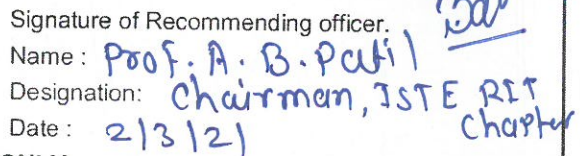 Signature of Recommending officer.
Name : Prof. A. B. Patil
Designation: Chairman, ISTE RIT
Chapter
Date : 2/3/21